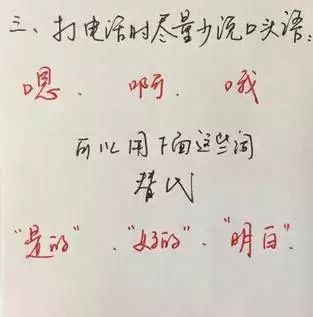 三、打电话时尽量少说口头语：
嗯、啊、哦
可以用下面这些词
替代
“是的”、“好的”、“明白”。